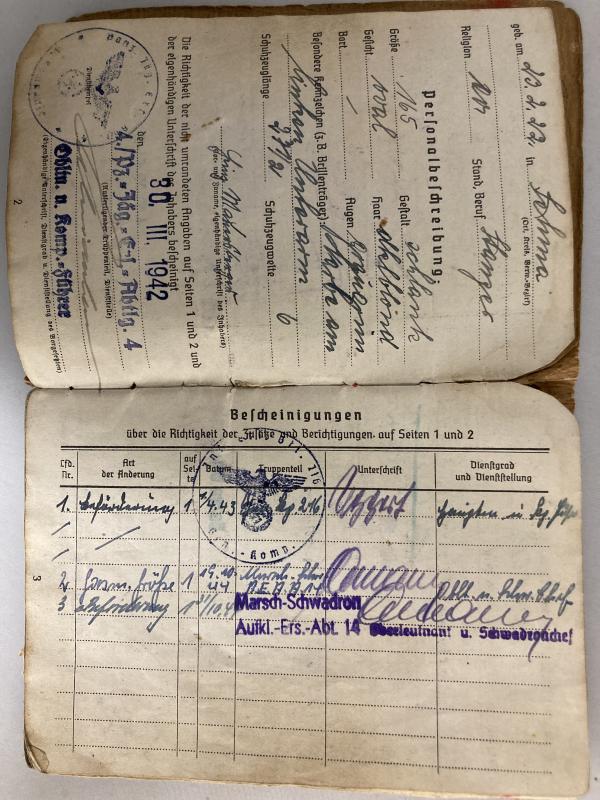 geb. am 23.2.22. in
(Ort, Kreis, Verw.-Bezirk)
Religion ev Stand, Beruf
Personalbeschreibung:
Größe 165 Gestalt schlank
Gesicht oval Haar dklblond
Bart — Augen
Besondere Kennzeichen (z.B. Brillenträger): Narbe am
linken Unterarm
Schuhzeuglänge Schuhzeugweite 6
(Vor- und Zuname, eigenhändige Unterschrift des Inhabers)
Die Richtigkeit der nicht umrandeten Angaben auf Seiten 1 und 2 und
der eigenhändigen Unterschrift des Inhabers bescheinigt
den 30. III. 1942
4./Pz.=Jäg.=Ers.=Abtlg. 4
(Ausfertigender Truppenteil, Dienststelle)
Dienststempel
Obltn. u. Komp.=Führer
(Eigenhändige Unterschrift, Dienstgrad u. Dienststellung des Vorgesetzten)
2
Bescheinigungen
über die Richtigkeit der Zusätze und Berichtigungen auf Seiten 1 und 2
Lfd. Nr.
Art der Änderung
auf Seite
Datum
Truppenteil
Unterschrift
Dienstgrad und Dienststellung
1. Beförderung 1 4.43 216 Hauptm u. Kp.
2. 1 19.10.44
3 Beförderung 1
Marsch-Schwadron
Aufkl.-Ers.-Abt. 14 Oberleutnant u. Schwadronchef
3